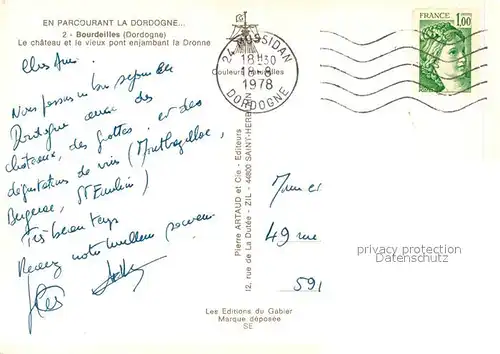 EN PARCOURANT LA DORDOGNE...
2 - Bourdeilles (Dordogne)
Le château et le vieux pont enjambant la Dronne
Couleurs naturelles
24 MUSSIDAN
18H30
18-8
1978
DORDOGNE
FRANCE
1,00
Chers amis.
Nous passons un bon séjour en
Dordogne avec des
châteaux, des grottes et des
dégustations de vins (Monbazillac,
Bergerac, St Emilion)
Très beau temps
Recevez notre meilleur souvenir
Pierre ARTAUD et Cie - Editeurs
12, rue de La Dutée - ZIL - 44800 SAINT-HERBLAIN
49 rue
591
privacy protection
Datenschutz
Les Editions du Gabier
Marque déposée
SE